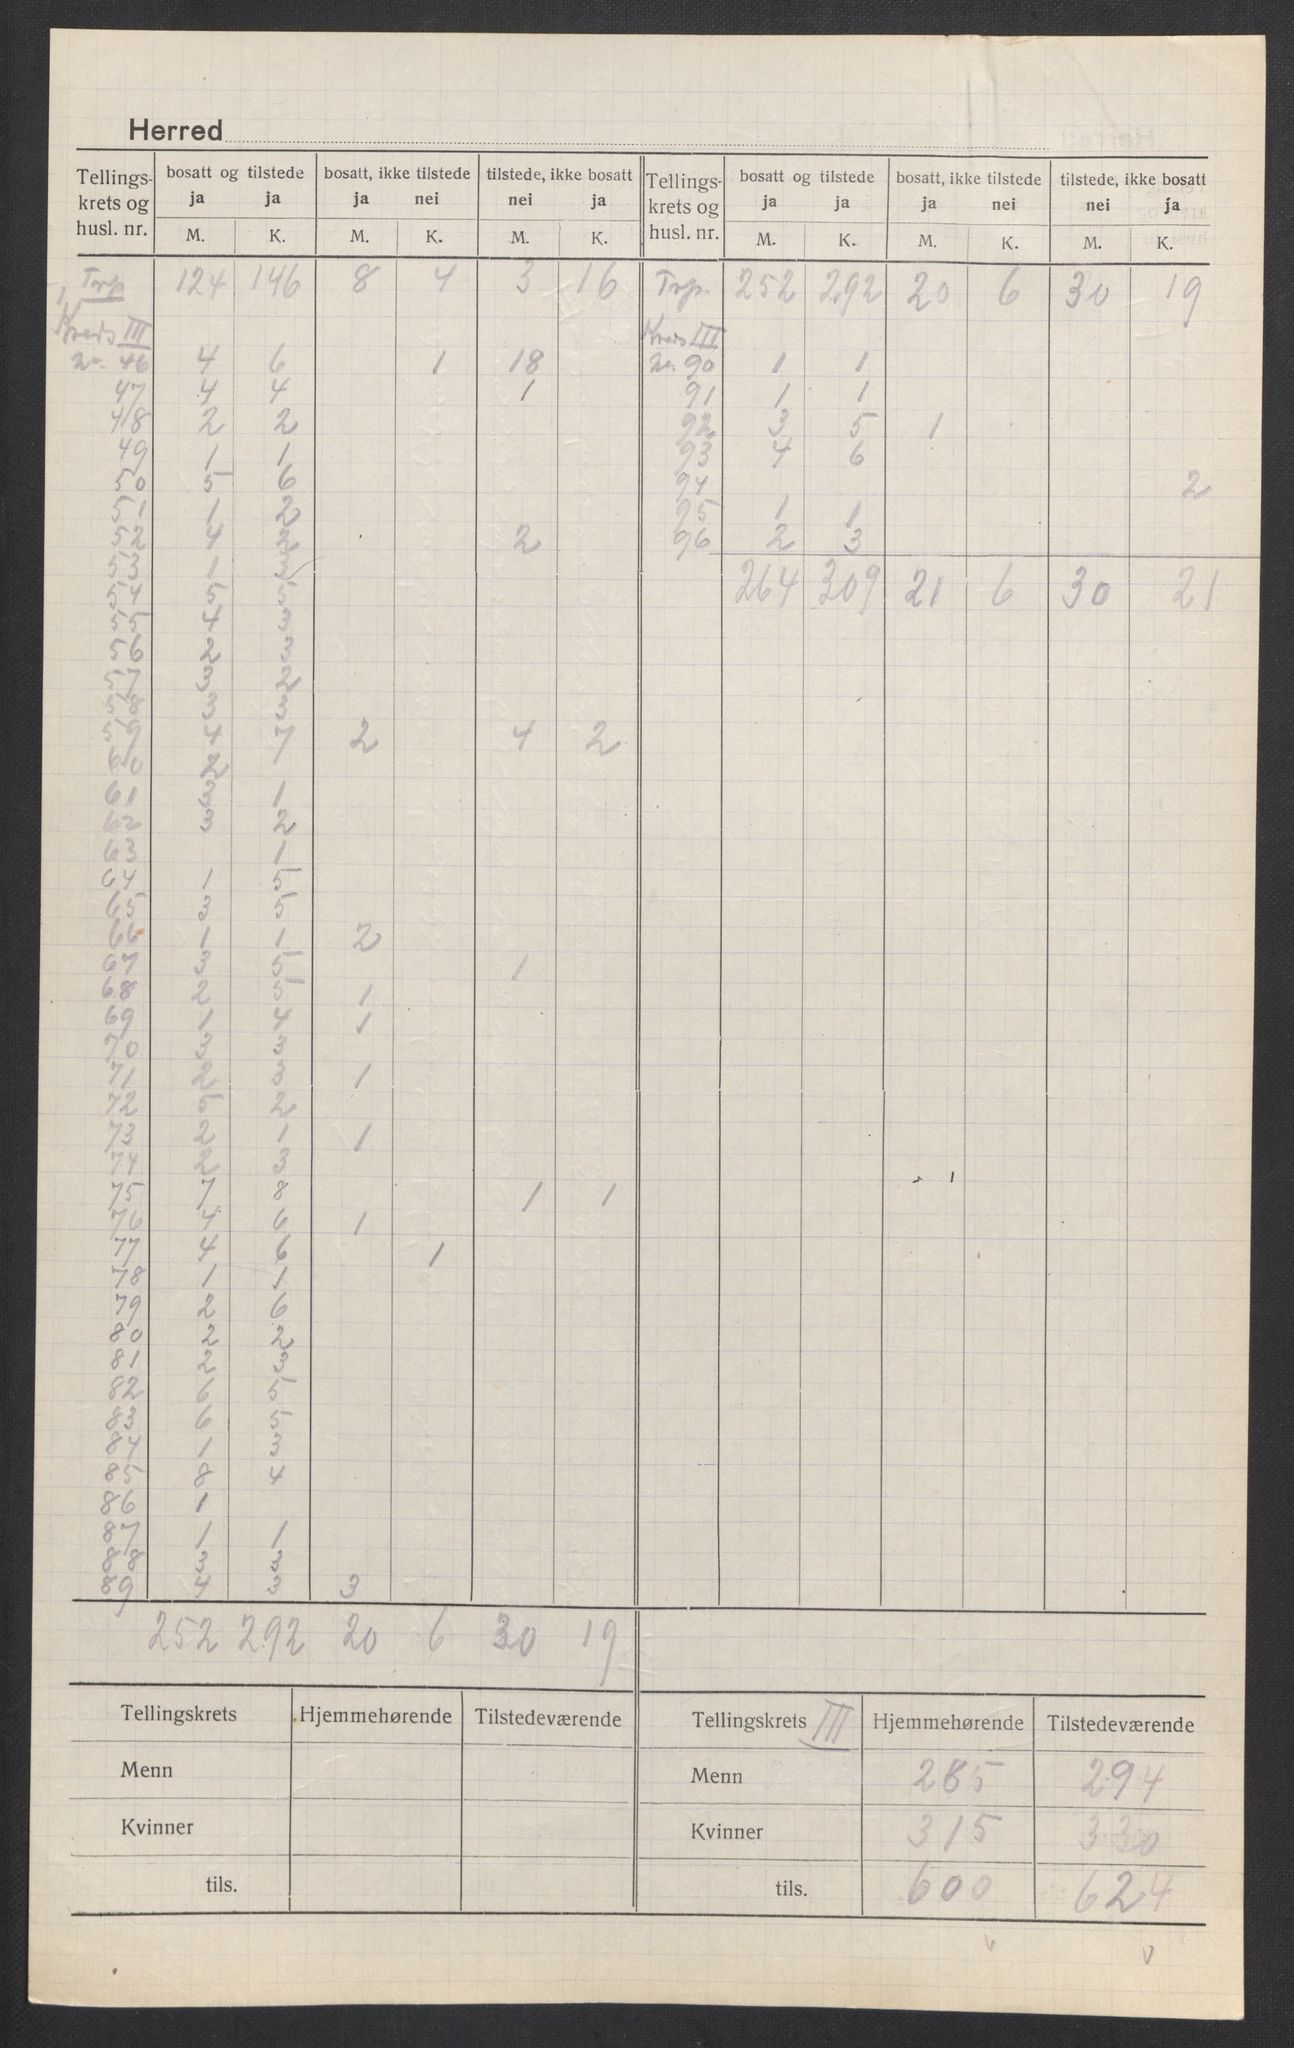 Herred
Tellings-krets og husl. nr. | bosatt og tilstede | bosatt, ikke tilstede | tilstede, ikke bosatt | Tellings-krets og husl. nr. | bosatt og tilstede | bosatt, ikke tilstede | tilstede, ikke bosatt
ja ja ja nei nei ja ja ja ja nei nei ja
M. K. M. K. M. K. M. K. M. K. M. K.
Trp. 124 146 8 4 3 16 Trp. 252 292 20 6 30 19
Kreds III Kreds III
46 4 6 1 18 90 1 1
47 4 4 1 91 1 1
48 2 2 92 3 5 1
49 1 1 93 4 6
50 5 6 94 2
51 1 2 95 1 1
52 4 2 2 96 2 3
53 1 3 264 309 21 6 30 21
54 5 5
55 4 3
56 2 3
57 3 2
58 3 3
59 4 7 2 4 2
60 2
61 3 1
62 3 2
63 1
64 1 5
65 3 5
66 1 1 2
67 3 5 1
68 2 5 1
69 1 4 1
70 3 3
71 2 3 1
72 5 2
73 2 1 1
74 2 3
75 7 8 1 1
76 4 6 1
77 4 6 1
78 1 1
79 2 6
80 2 2
81 2 3
82 6 5
83 6 5
84 1 3
85 8 4
86 1
87 1 1
88 3 3
89 4 3 3
252 292 20 6 30 19
Tellingskrets Hjemmehørende Tilstedeværende Tellingskrets III Hjemmehørende Tilstedeværende
Menn Menn 285 294
Kvinner Kvinner 315 330
tils. tils. 600 624
v v